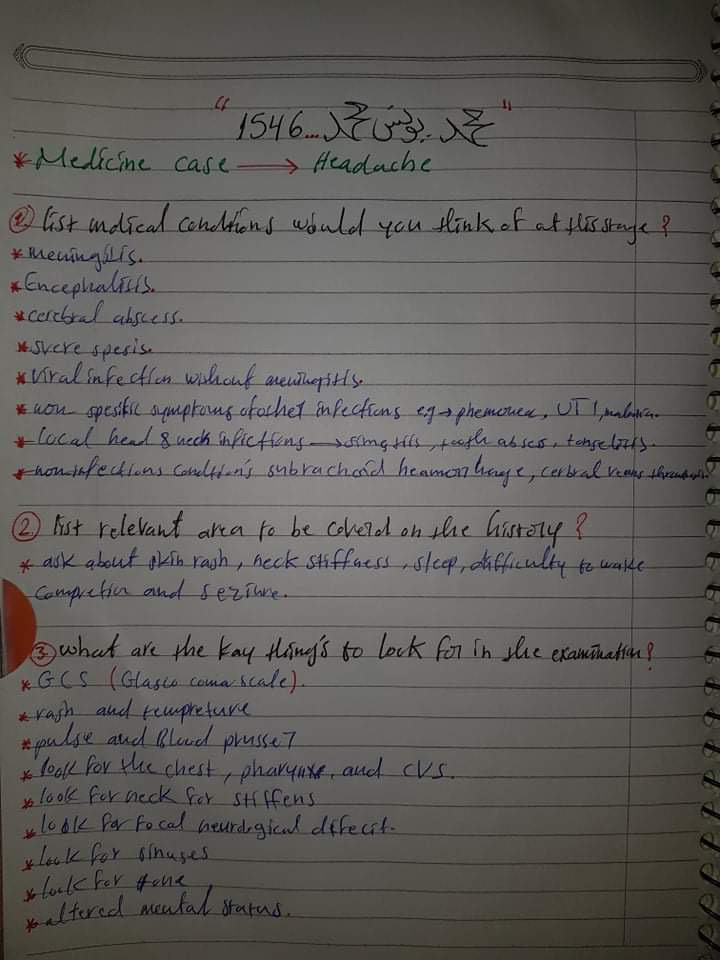 "محمد يونس محمد...1546"
* Medicine case → Headache
① List medical conditions would you think of at this stage?
* meningitis.
* Encephalitis.
* cerebral abscess.
* svere spesis.
* viral infection without meningitis.
* non spesific symptoms of other infections e.g → phemonea, UTI, malaria.
* local head & neck infictions → sinustits, tooth abses, tonselitis.
* non infections condition's subrachnoid heamorrhage, cerbral veins thrombosis.
② list relevant area to be coverd on the history?
* ask about skin rash, neck stiffness, sleep, difficulty to wake
and sezihre.
③ what are the kay thing's to lock for in the examination?
* GCS (Glasco coma scale).
* rash and tempreture
* pulse and Blood prusser
* look for the chest, pharynx, and CVS.
* look for neck for stiffens
* look for focal neurological difecit.
* look for sinuses
* look for
* altered mental status.